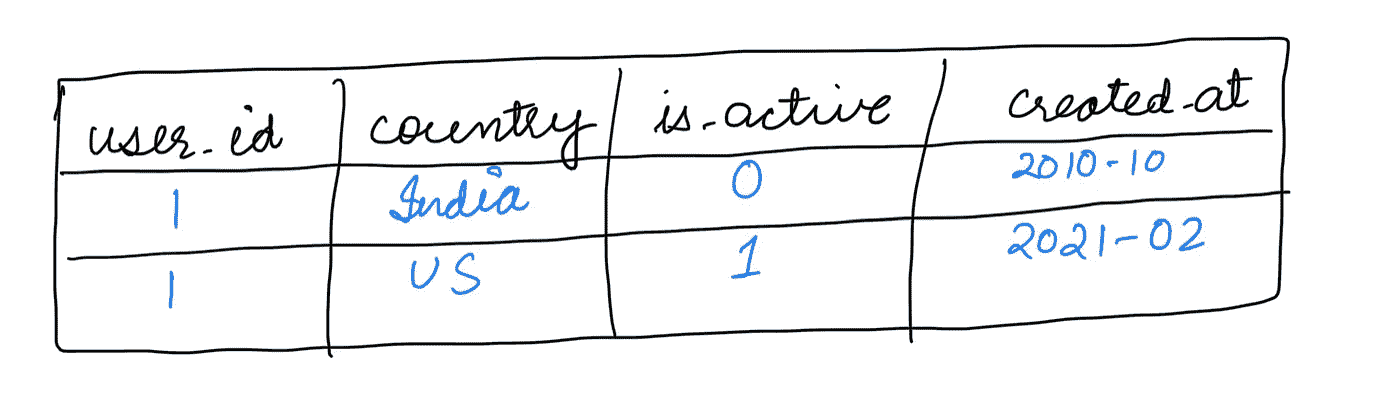 user_id country is_active created_at
1 India 0 2010-10
1 US 1 2021-02